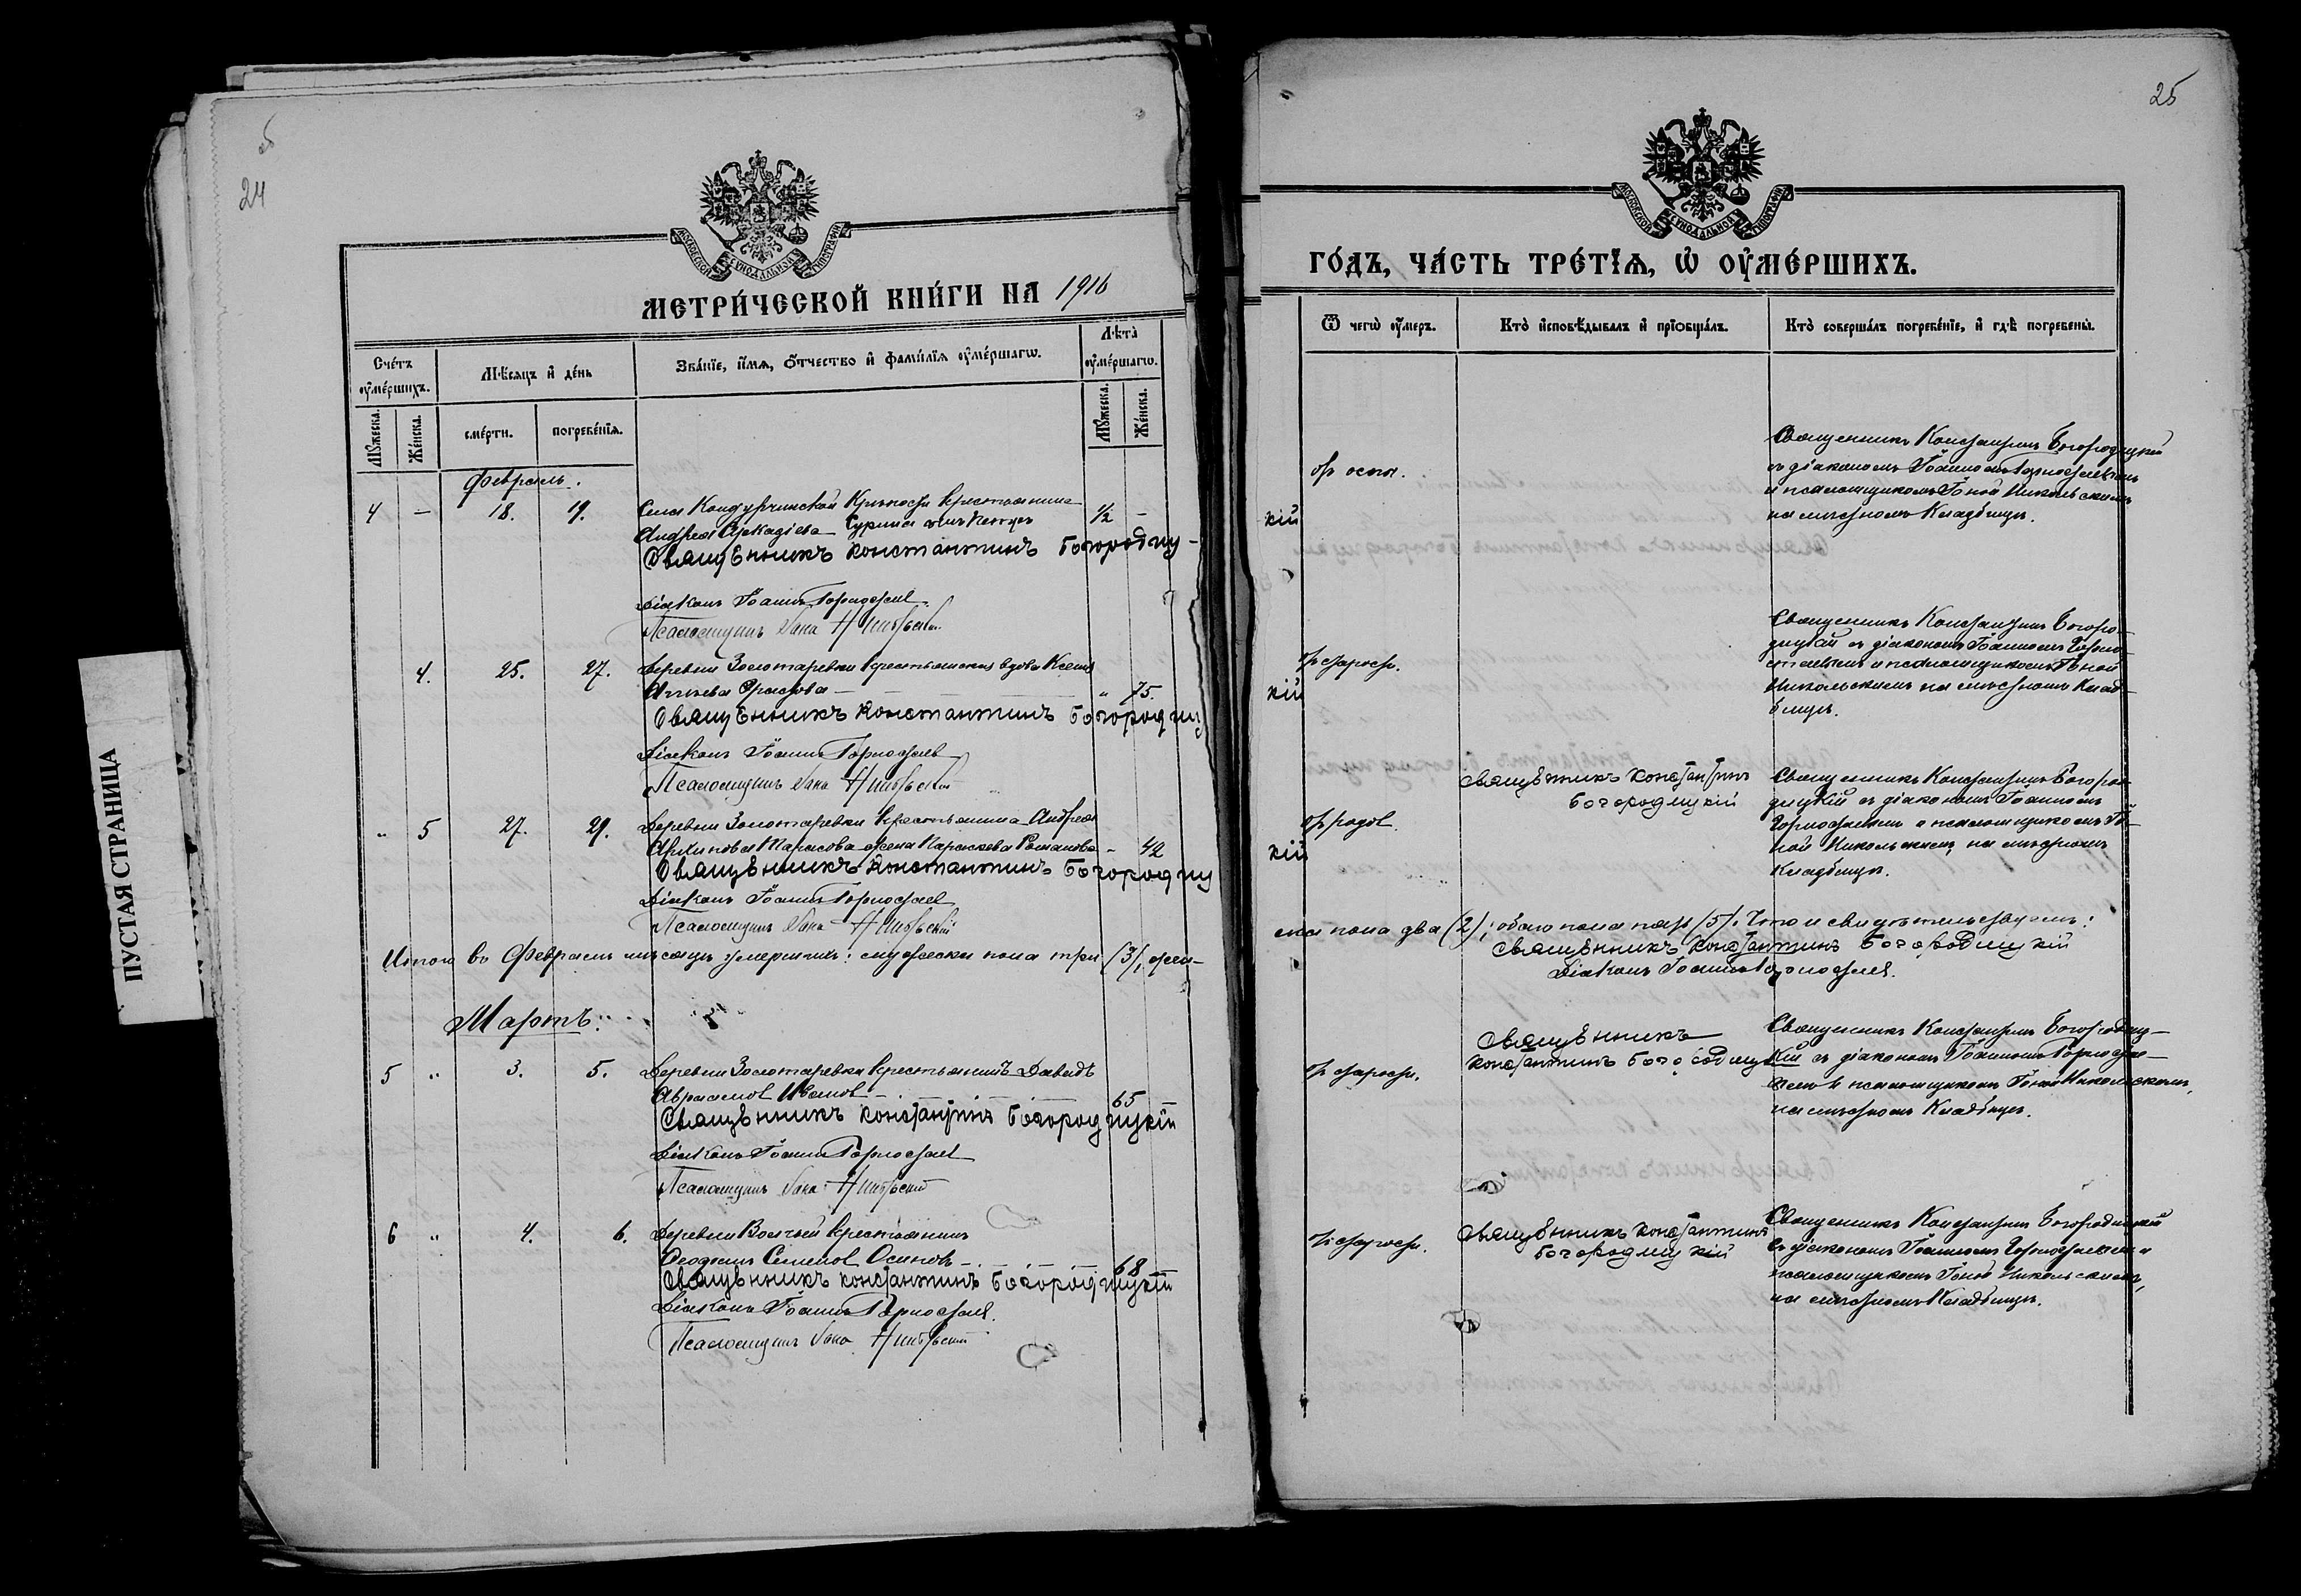 24
МОСКОВСКОЙ СУНОДАЛЬНОЙ ТИПОГРАФІИ
МЕТРИ́ЧЕСКОЙ КНИ́ГИ НА 1916
Сче́тъ ᲂу҆ме́ршихъ.
Мꙋ́жеска.
Же́нска.
Мѣ́сяцъ и҆ де́нь
сме́рти.
погребе́нїѧ.
Зва́нїе, и҆́мѧ, ѻ҆́тчество и҆ фами́лїѧ ᲂу҆ме́ршагѡ.
Лѣ́та ᲂу҆ме́ршагѡ.
Мꙋ́жеска.
Же́нска.
Февраль.
4 – 18. 19. Села Кондурчинской Крѣпости крестьянина
Андрея Аркадіева Сурина сынъ 1/2 –
Священникъ Константинъ Богородиц-
Діаконъ Іоаннъ Горностаев
Псаломщикъ Іона Никольскій
4. 25. 27. Деревни Золотаревки крестьянская вдова Ксенія
" 75.
Священникъ Константинъ Богородиц
Діаконъ Іоаннъ Горностаев
Псаломщикъ Іона Никольскій
" 5 27. 29. Деревни Золотаревки крестьянина Андрея
Архипова Тарасова жена Параскева Романова – 42
Священникъ Константинъ Богородиц
Діаконъ Іоаннъ Горностаев
Псаломщикъ Іона Никольскій
Итого въ Февралѣ мѣсяцѣ умершихъ: мужеска пола три (3), жен-
Мартъ.
5 " 3. 5. Деревни Золотаревки крестьянинъ Давидъ
Авраамов Иванов 65
Священникъ Константинъ Богородицкій
Діаконъ Іоаннъ Горностаев
Псаломщикъ Іона Никольскій
6 " 4. 6. Деревни Волчьей крестьянинъ
Семенов Осиповъ 68
Священникъ Константинъ Богородицкій
Діаконъ Іоаннъ Горностаев.
Псаломщикъ Іона Никольскій
ПУСТАЯ СТРАНИЦА
25
МОСКОВСКОЙ СУНОДАЛЬНОЙ ТИПОГРАФІИ
ГО́ДЪ, ЧА́СТЬ ТРЕ́ТЇѦ, Ѡ҆ ОУ҆МЕ́РШИХЪ.
Ѿ чегѡ̀ ᲂу҆́меръ.
Кто̀ и҆сповѣ́дывалъ и҆ прїѡбща́лъ.
Кто̀ соверша́лъ погребе́нїе, и҆ гдѣ̀ погребены̀.
кій
От оспы.
Священникъ Константинъ Богородицкій
съ діакономъ Іоанномъ Горностаевымъ
и псаломщикомъ Іоной Никольскимъ
на мѣстномъ Кладбищѣ.
кій
От старости.
Священникъ Константинъ Богоро-
дицкій съ діакономъ Іоанномъ Горно-
стаевымъ и псаломщикомъ Іоной
Никольскимъ на мѣстномъ Клад-
бищѣ.
кій
От родов.
Священникъ Константинъ
Богородицкій
Священникъ Константинъ Богоро-
дицкій съ діакономъ Іоанномъ
Горностаевымъ и псаломщикомъ Іо-
ной Никольскимъ, на мѣстномъ
Кладбищѣ.
ска пола два (2); обоего пола пять (5). Что и свидѣтельствуемъ:
Священникъ Константинъ Богородицкій
Діаконъ Іоаннъ Горностаев.
От старости.
Священникъ
Константинъ Богородицкій
Священникъ Константинъ Богородиц-
кій съ діакономъ Іоанномъ Горностае-
вымъ и псаломщикомъ Іоной Никольскимъ,
на мѣстномъ Кладбищѣ.
От старости.
Священникъ Константинъ
Богородицкій
Священникъ Константинъ Богородицкій
съ діакономъ Іоанномъ Горностаевымъ и
псаломщикомъ Іоной Никольскимъ,
на мѣстномъ Кладбищѣ.